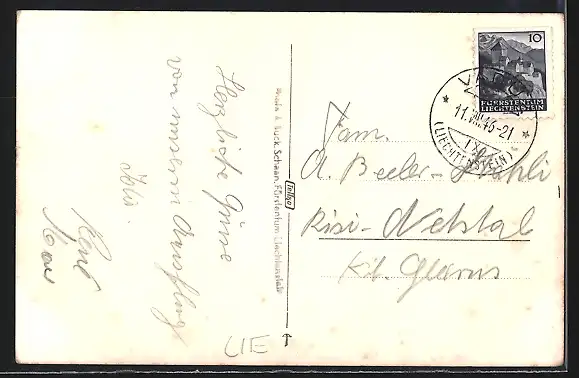 Herzliche Grüsse
von unserm Ausflug
René
Foto & Druck, Schaan, Fürstentum Liechtenstein
10
FÜRSTENTUM
LIECHTENSTEIN
VADUZ
11.VIII.46-21
(LIECHTENSTEIN)
Fam.
A. Beeler-Stähli
Risi-Netstal
Kt. Glarus
LIE